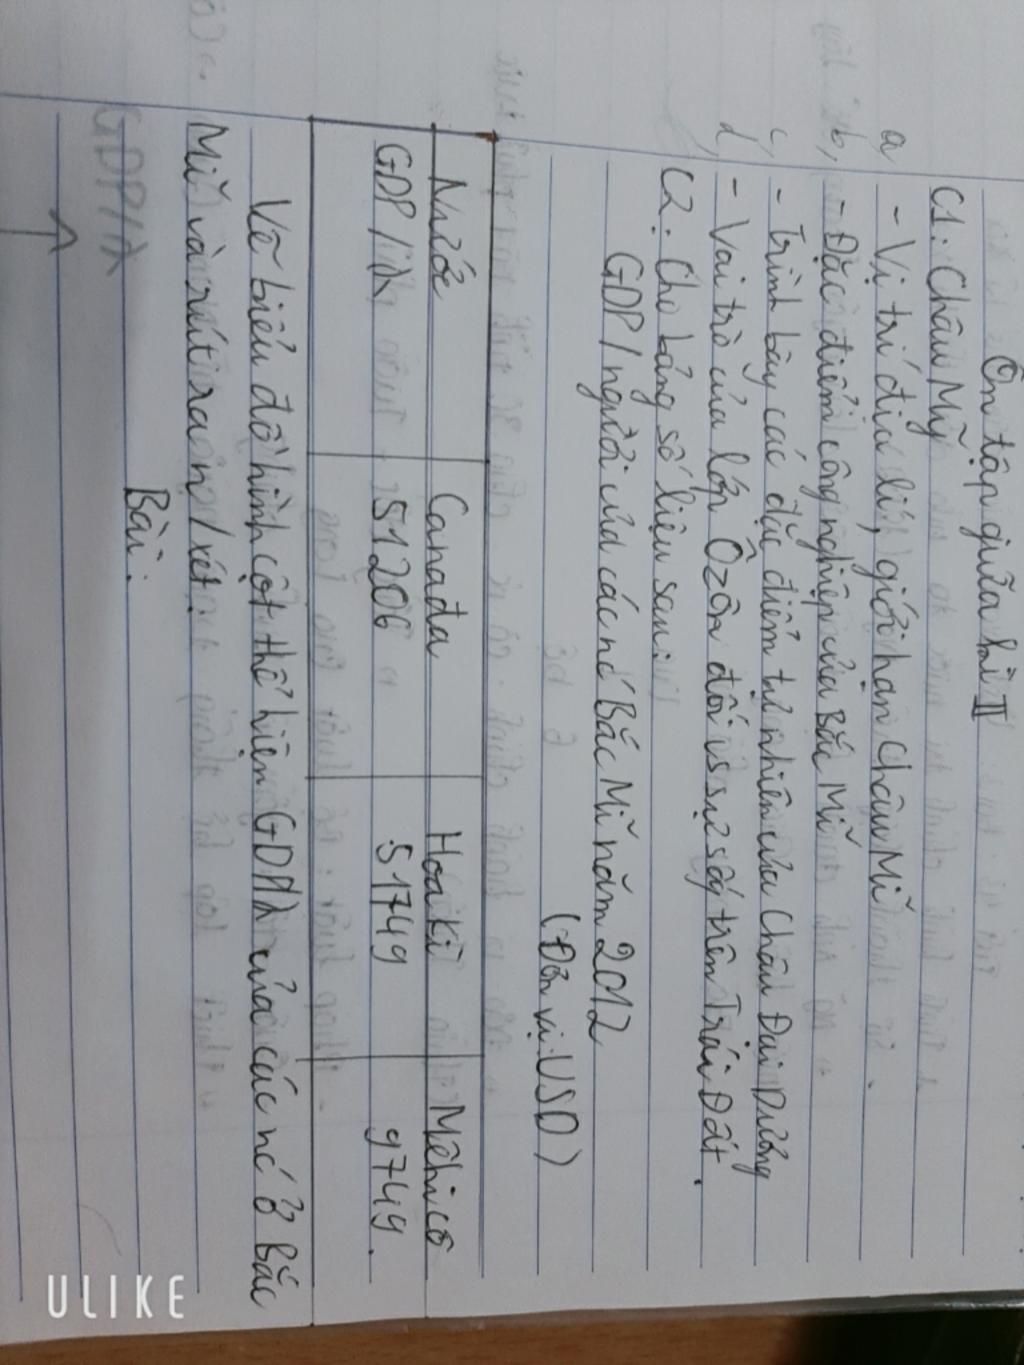 Ôn tập giữa kì II
C1: Châu Mỹ
a, - Vị trí địa lí, giới hạn Châu Mĩ
b, - Đặc điểm công nghiệp của Bắc Mĩ
c, - Trình bày các đặc điểm tự nhiên của Châu Đại Dương
d, - Vai trò của lớp Ôzôn đối vs sự sống trên Trái Đất.
C2: Cho bảng số liệu sau:
GDP/người của các nớ Bắc Mĩ năm 2012
(Đơn vị: USD)
Nước Canađa Hoa kì Mêhicô
GDP/ 51206 51749 9749.
Vẽ biểu đồ hình cột thể hiện GDP/ của các nớ ở Bắc
Mĩ và rút ra n/xét.
Bài:
GDP/
ULIKE